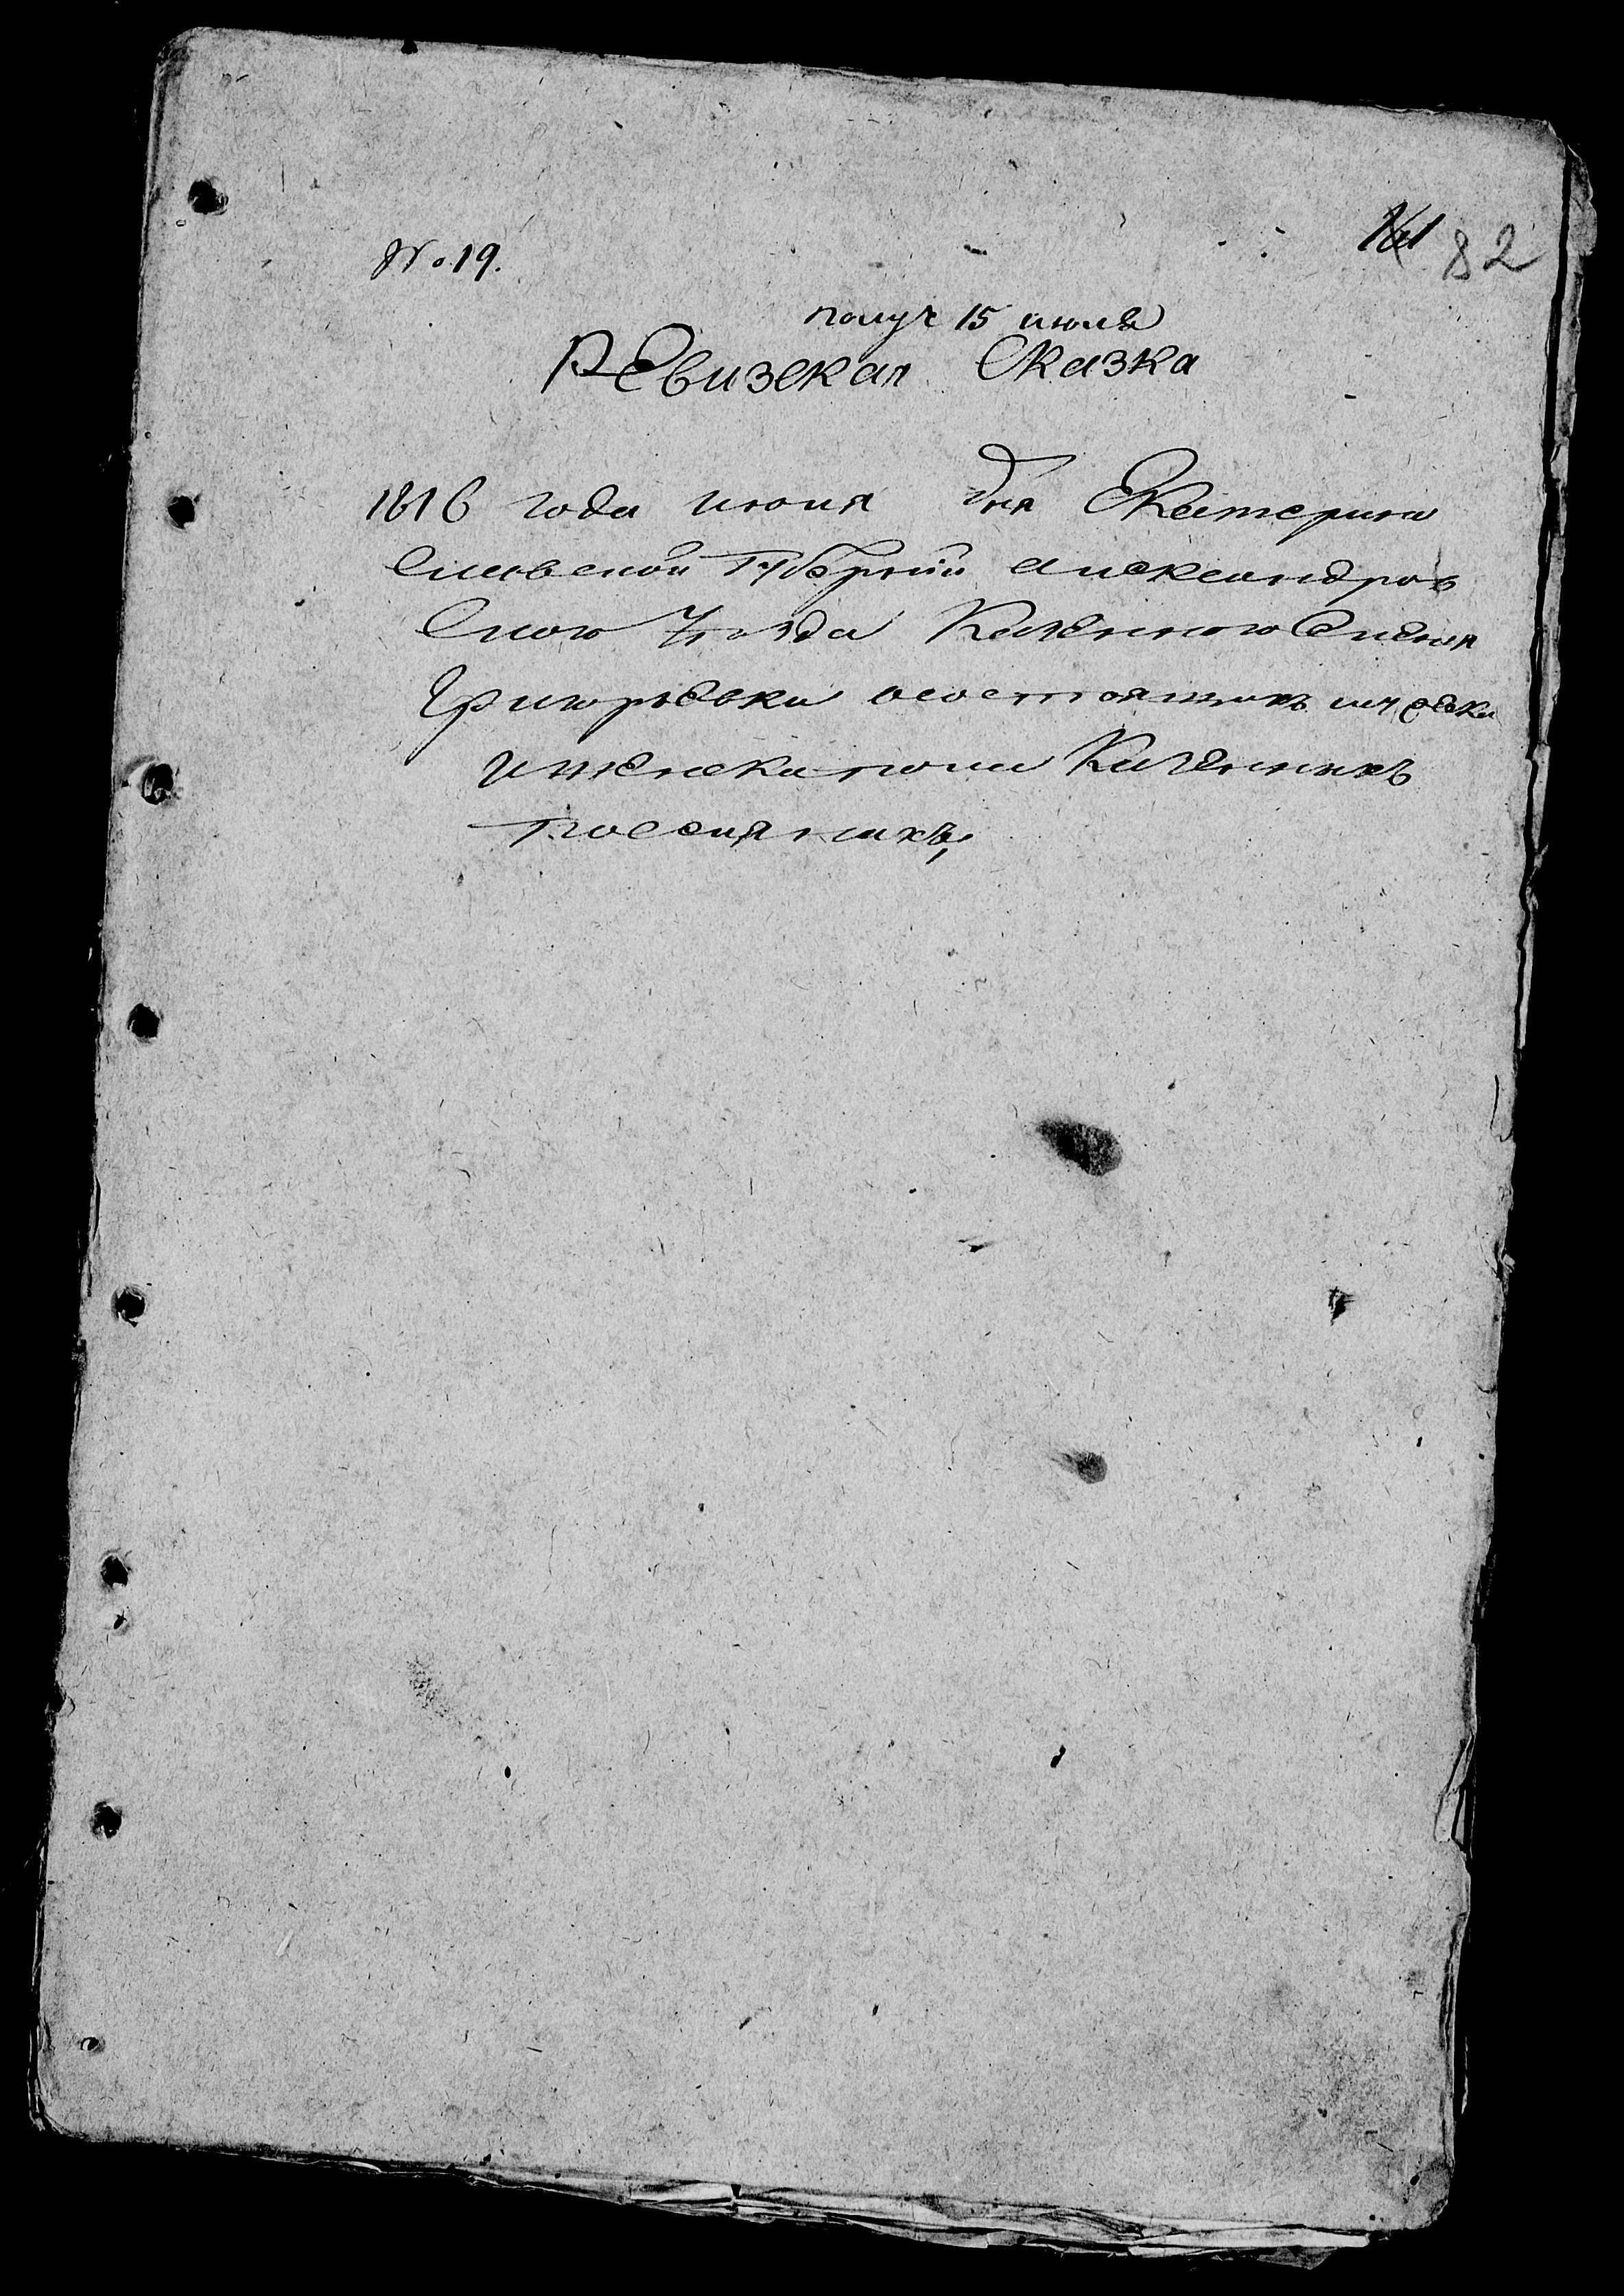 141 82
№ 19.
получ 15 июля
Ревизская Сказка
1816 года июня дня Екатерино
Славской Губернии Александров
Скаго уезда Казенного Селения
Григорьевки о состоящихъ мужеска
и женска пола Казенныхъ
поселянахъ,